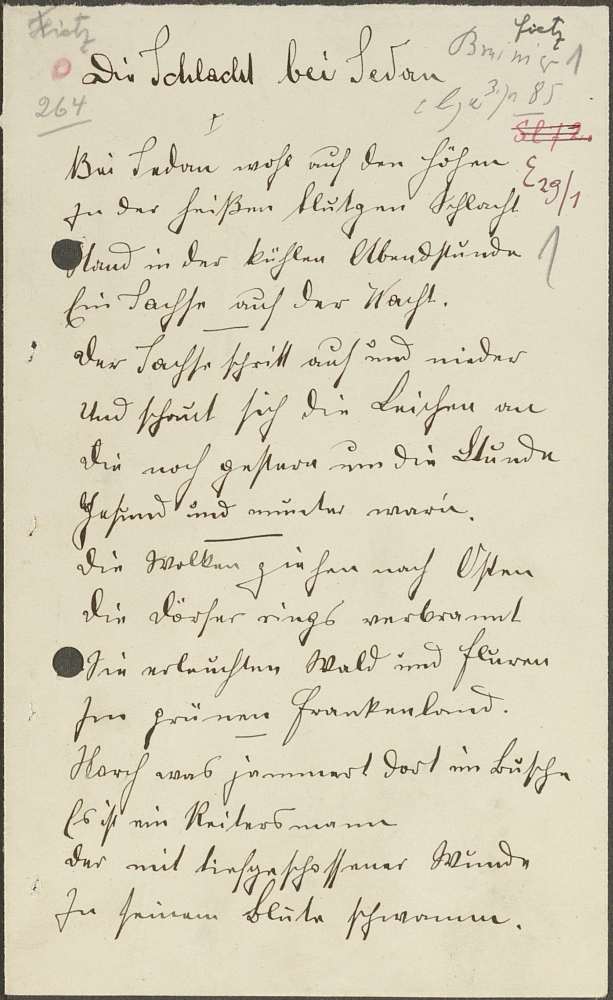 Hietz
Hietz
Die Schlacht bei Sedan
1
264
85
I
Bei Sedan wohl auf den Höhen
E 29/1
In der heißen blutgen Schlacht
Stand in der kühlen Abendstunde
1
Ein Sachse auf der Wacht.
Der Sachse schritt auf und nieder
Und schaut sich die Leichen an
Die noch gestern um die Stunde
Gesund und munter warn.
Die Wolken ziehen nach Osten
Die Dörfer rings verbrannt
Sie erleuchten Wald und Fluren
Im grünen Frankenland.
Horch was jammert dort im Busche
Es ist ein Reitersmann
Der mit tiefgeschossener Wunde
In seinem Blute schwamm.